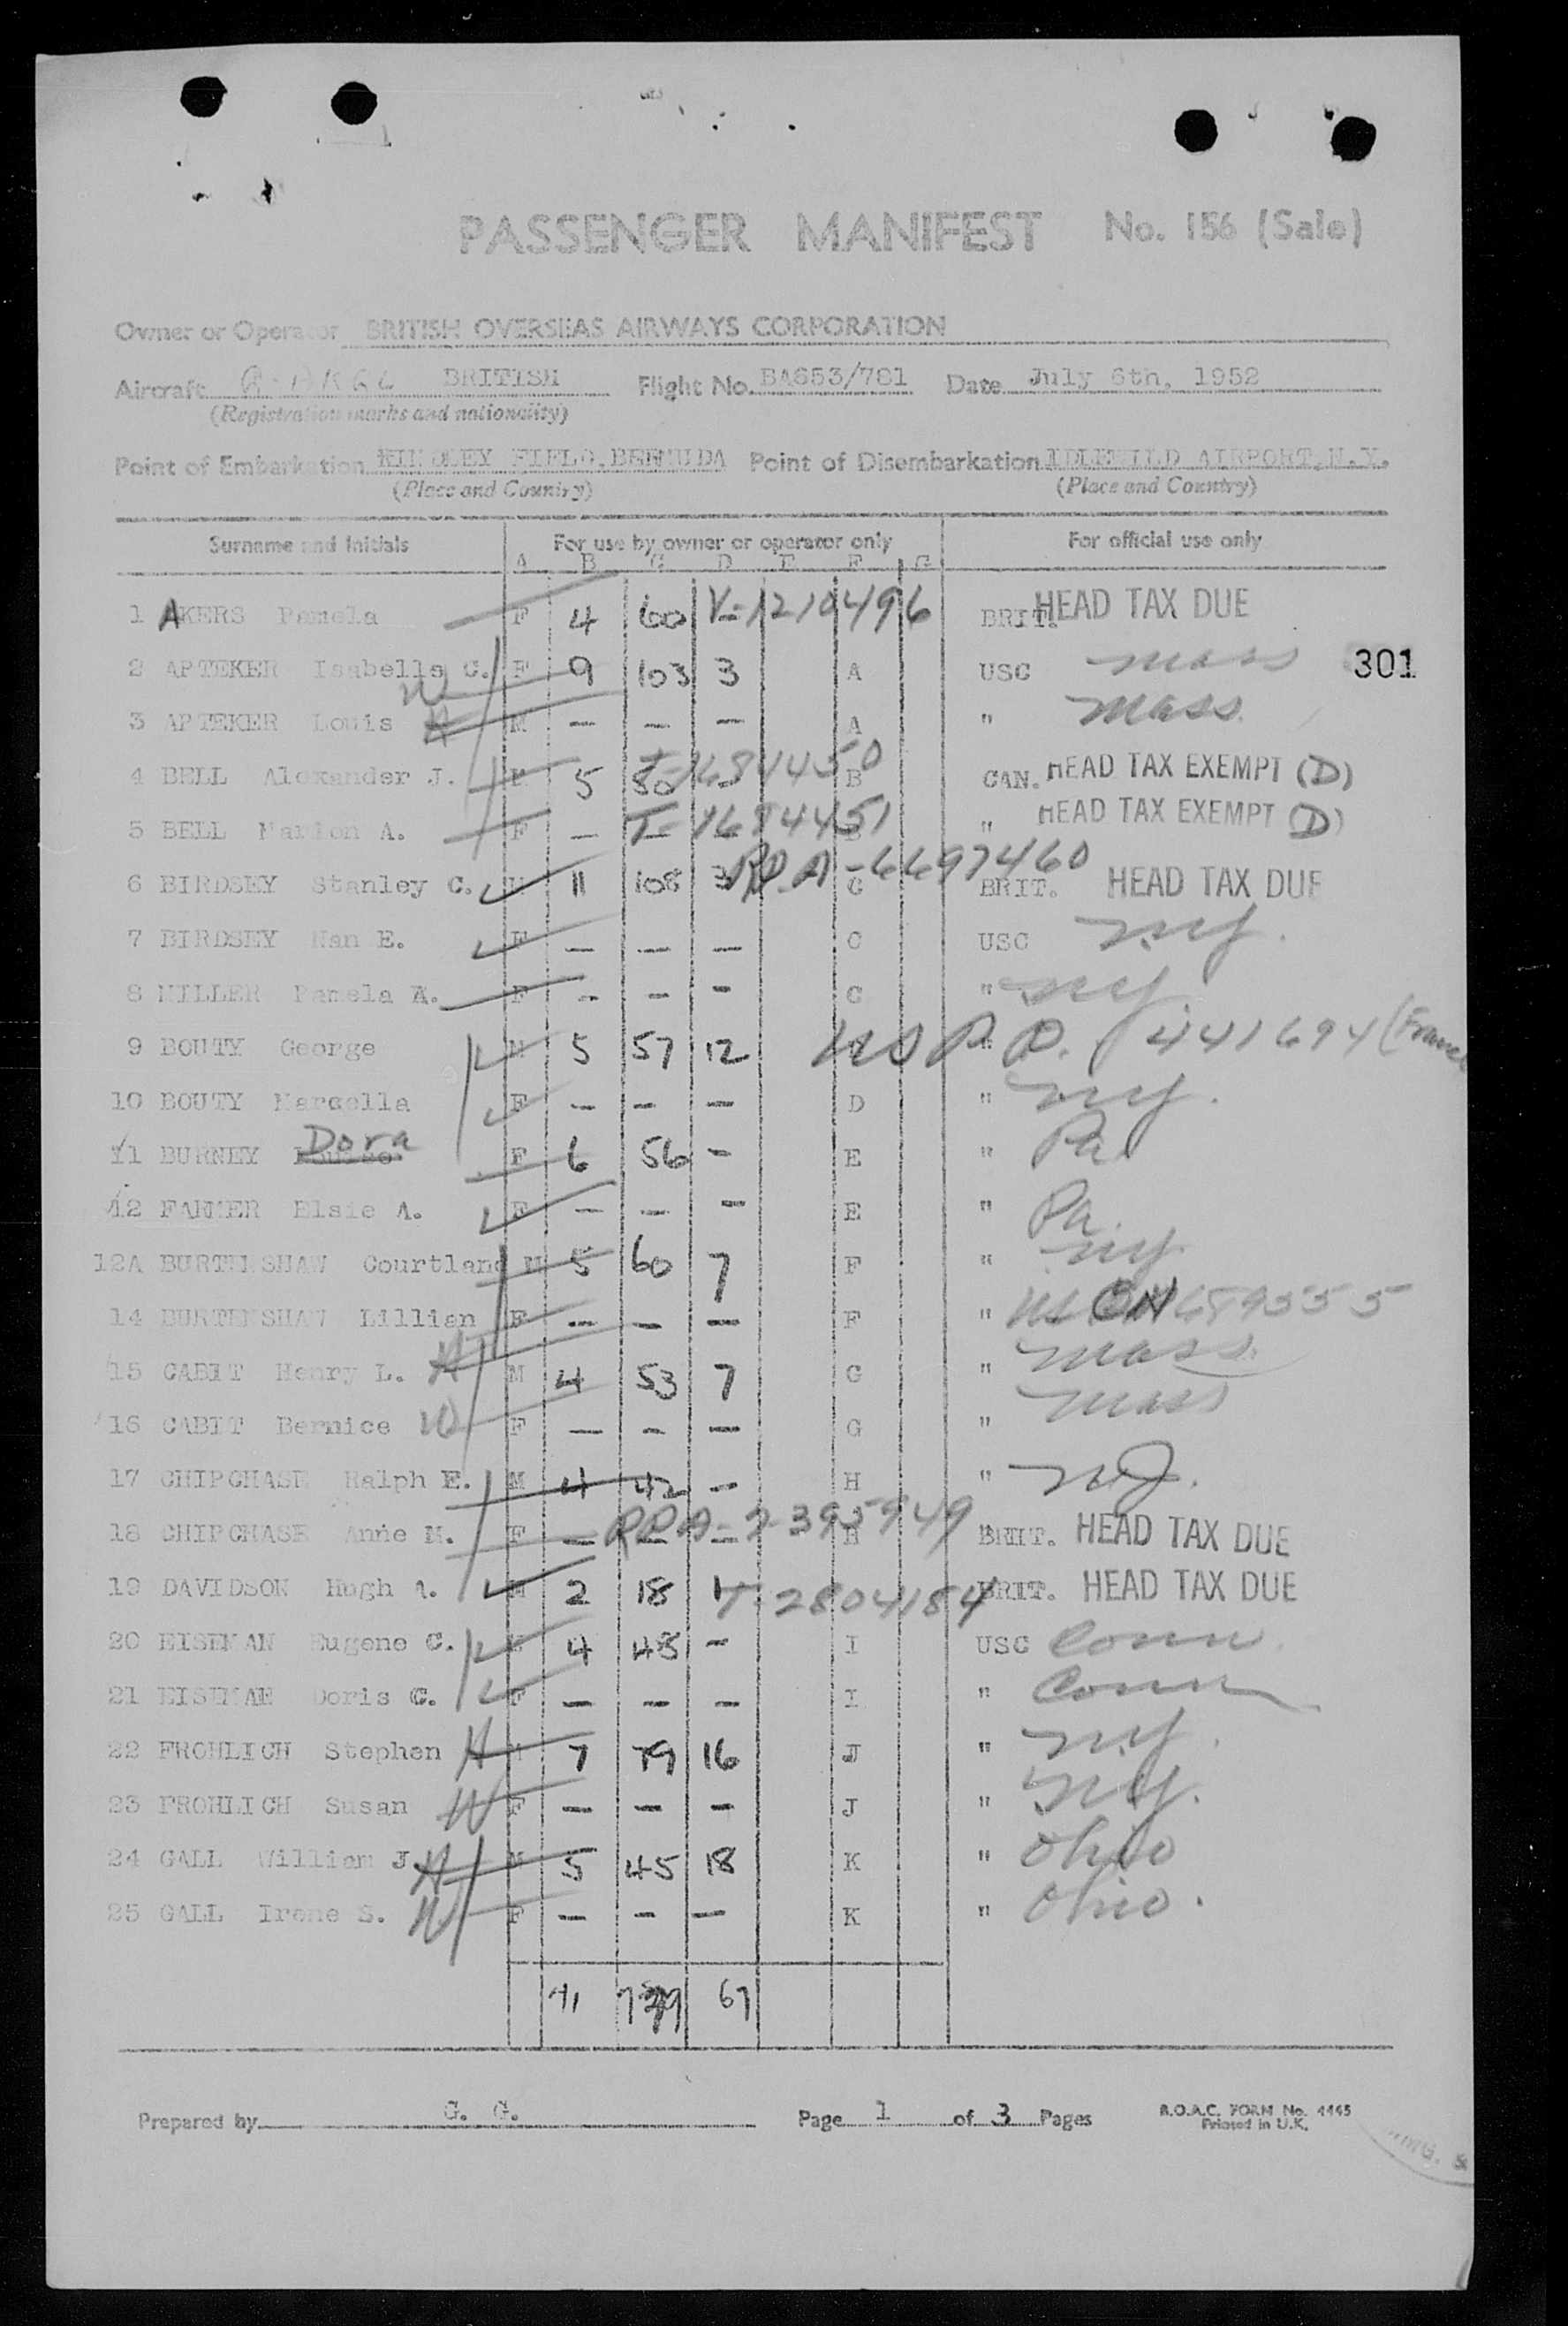 PASSENGER MANIFEST No. 156 (Sale)
Owner or Operator BRITISH OVERSEAS AIRWAYS CORPORATION
Aircraft BRITISH Flight No. BA653/781 Date July 6th, 1952
(Registration marks and nationality)
Point of Embarkation KINDLEY FIELD, BERMUDA Point of Disembarkation IDLEWILD AIRPORT, N.Y.
(Place and Country) (Place and Country)
Surname and Initials For use by owner or operator only For official use only
A B C D E F G
1 AKERS Pamela F 4 60 V-1210496 BRIT. HEAD TAX DUE
2 APTEKER Isabella C. F 9 103 3 A USC Mass 301
W
3 APTEKER Louis H M — — — A " Mass
4 BELL Alexander J. 5 80 T-1684450 B CAN. HEAD TAX EXEMPT (D)
5 BELL Marion A. F — — T-1684451 B " HEAD TAX EXEMPT (D)
6 BIRDSEY Stanley C. M 11 108 3 RPA-6697460 C BRIT. HEAD TAX DUE
7 BIRDSEY Nan E. F — — — C USC N.Y.
8 MILLER Pamela A. F — — — C " N.Y.
9 BOUTY George M 5 57 12 US P.P. 441694 (France
10 BOUTY Marcella F — — — D " N.Y.
11 BURNEY Dora F 6 56 — E " Pa
12 FARMER Elsie A. F — — — E " Pa.
12A BURTENSHAW Courtland M 5 60 7 F " N.Y.
14 BURTENSHAW Lillian F — — — F " US CN 689555
15 CABIT Henry L. H M 4 53 7 G " Mass
16 CABIT Bernice W F — — — G " Mass
17 CHIPCHASE Ralph E. M 4 42 — H " N.J.
18 CHIPCHASE Annie M. F — — — RPA-2395949 H BRIT. HEAD TAX DUE
19 DAVIDSON Hugh A. M 2 18 1 T-2804184 BRIT. HEAD TAX DUE
20 EISEMAN Eugene C. M 4 48 — I USC Conn
21 EISEMAN Doris C. F — — — I " Conn
22 FROHLICH Stephen H M 7 79 16 J " N.Y.
23 FROHLICH Susan W F — — — J " N.Y.
24 GALL William J H M 5 45 18 K " Ohio
25 GALL Irene S. W F — — — K " Ohio.
71 67
Prepared by G. G. Page 1 of 3 Pages B.O.A.C. FORM No. 4445
Printed in U.K.